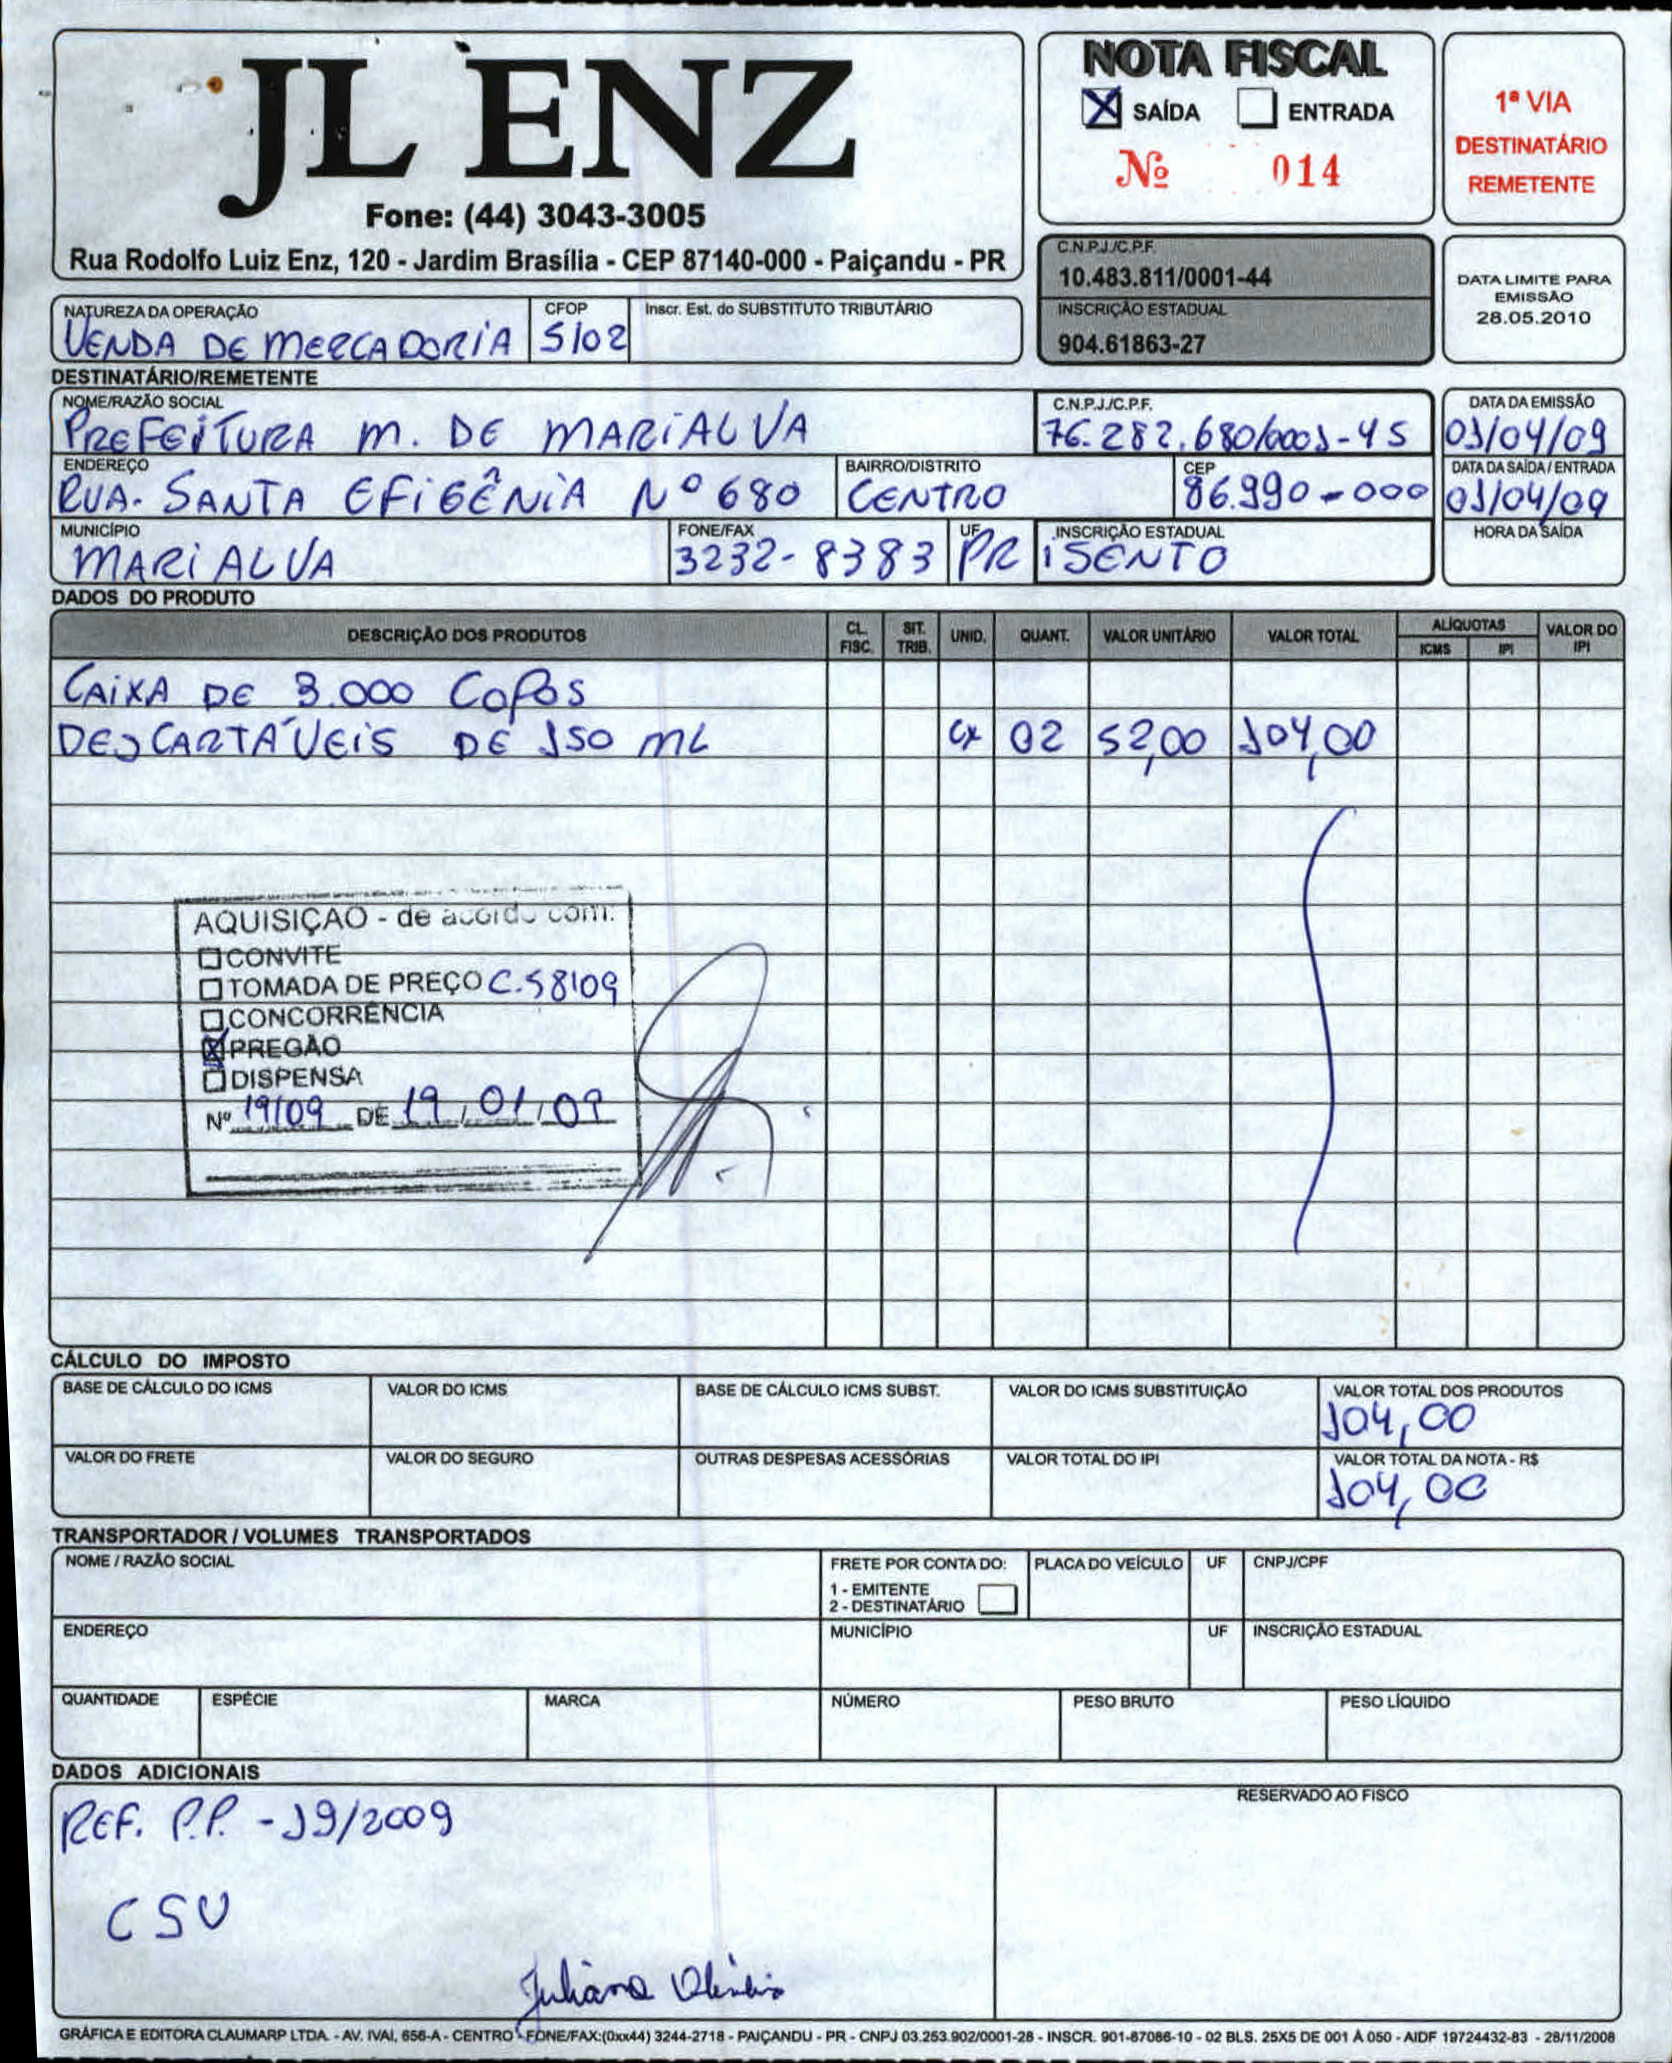 JL ENZ
Fone: (44) 3043-3005
Rua Rodolfo Luiz Enz, 120 - Jardim Brasília - CEP 87140-000 - Paiçandu - PR
NOTA FISCAL
SAÍDA ENTRADA
Nº 014
1ª VIA
DESTINATÁRIO
REMETENTE
C.N.P.J./C.P.F.
10.483.811/0001-44
INSCRIÇÃO ESTADUAL
904.61863-27
DATA LIMITE PARA
EMISSÃO
28.05.2010
NATUREZA DA OPERAÇÃO CFOP Inscr. Est. do SUBSTITUTO TRIBUTÁRIO
VENDA DE MERCADORIA 5102
DESTINATÁRIO/REMETENTE
NOME/RAZÃO SOCIAL C.N.P.J./C.P.F. DATA DA EMISSÃO
PREFEITURA M. DE MARIALVA 76.282.680/0001-45 01/04/09
ENDEREÇO BAIRRO/DISTRITO CEP DATA DA SAÍDA / ENTRADA
RUA. SANTA EFIGÊNIA Nº 680 CENTRO 86.990-000 01/04/09
MUNICÍPIO FONE/FAX UF INSCRIÇÃO ESTADUAL HORA DA SAÍDA
MARIALVA 3232-8383 PR ISENTO
DADOS DO PRODUTO
DESCRIÇÃO DOS PRODUTOS CL. FISC. SIT. TRIB. UNID. QUANT. VALOR UNITÁRIO VALOR TOTAL ALÍQUOTAS ICMS IPI VALOR DO IPI
CAIXA DE 3.000 COPOS
DESCARTÁVEIS DE 150 ML CX 02 52,00 104,00
AQUISIÇÃO - de acordo com:
CONVITE
TOMADA DE PREÇO C.58109
CONCORRÊNCIA
PREGÃO
DISPENSA
Nº 19/09 DE 19/01/09
CÁLCULO DO IMPOSTO
BASE DE CÁLCULO DO ICMS VALOR DO ICMS BASE DE CÁLCULO ICMS SUBST. VALOR DO ICMS SUBSTITUIÇÃO VALOR TOTAL DOS PRODUTOS
104,00
VALOR DO FRETE VALOR DO SEGURO OUTRAS DESPESAS ACESSÓRIAS VALOR TOTAL DO IPI VALOR TOTAL DA NOTA - R$
104,00
TRANSPORTADOR / VOLUMES TRANSPORTADOS
NOME / RAZÃO SOCIAL FRETE POR CONTA DO: PLACA DO VEÍCULO UF CNPJ/CPF
1 - EMITENTE
2 - DESTINATÁRIO
ENDEREÇO MUNICÍPIO UF INSCRIÇÃO ESTADUAL
QUANTIDADE ESPÉCIE MARCA NÚMERO PESO BRUTO PESO LÍQUIDO
DADOS ADICIONAIS
RESERVADO AO FISCO
REF. P.P. - 19/2009
CSU
Juliana
GRÁFICA E EDITORA CLAUMARP LTDA. - AV. IVAÍ, 656-A - CENTRO - FONE/FAX:(0xx44) 3244-2718 - PAIÇANDU - PR - CNPJ 03.253.902/0001-28 - INSCR. 901-87086-10 - 02 BLS. 25X5 DE 001 À 050 - AIDF 19724432-83 - 28/11/2008